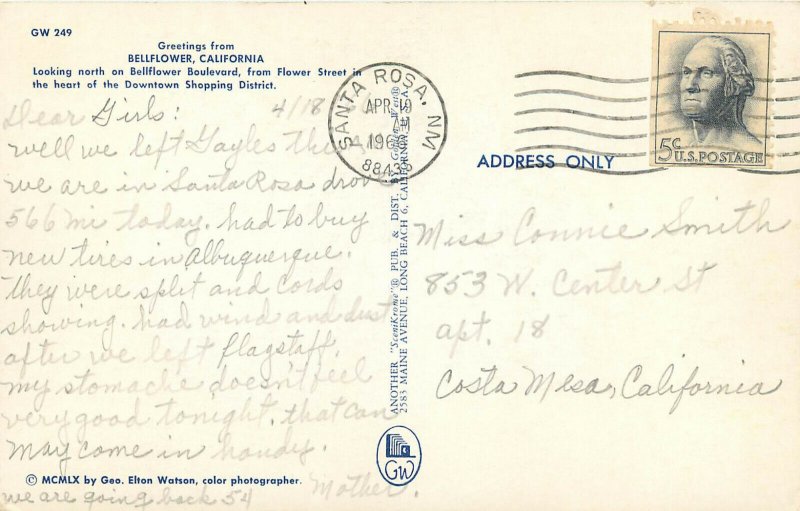 GW 249
Greetings from
BELLFLOWER, CALIFORNIA
Looking north on Bellflower Boulevard, from Flower Street in
the heart of the Downtown Shopping District.
Dear Girls: 4/18
well we left Gayles
we are in Santa Rosa drove
566 mi today. had to buy
new tires in Albuquerque.
They were split and cords
showing. had wind and dust
after we left flagstaff.
my stomache doesn't feel
very good tonight. that can
may come in handy.
Mother.
we are going back 54
© MCMLX by Geo. Elton Watson, color photographer.
ANOTHER "SceniKrome"® PUB. & DIST. BY
2583 MAINE AVENUE, LONG BEACH 6, CALIFORNIA
GW
SANTA ROSA, NM
APR 19
AM
88435
5¢ U.S. POSTAGE
ADDRESS ONLY
Miss Connie Smith
853 W. Center St
apt. 18
Costa Mesa, California